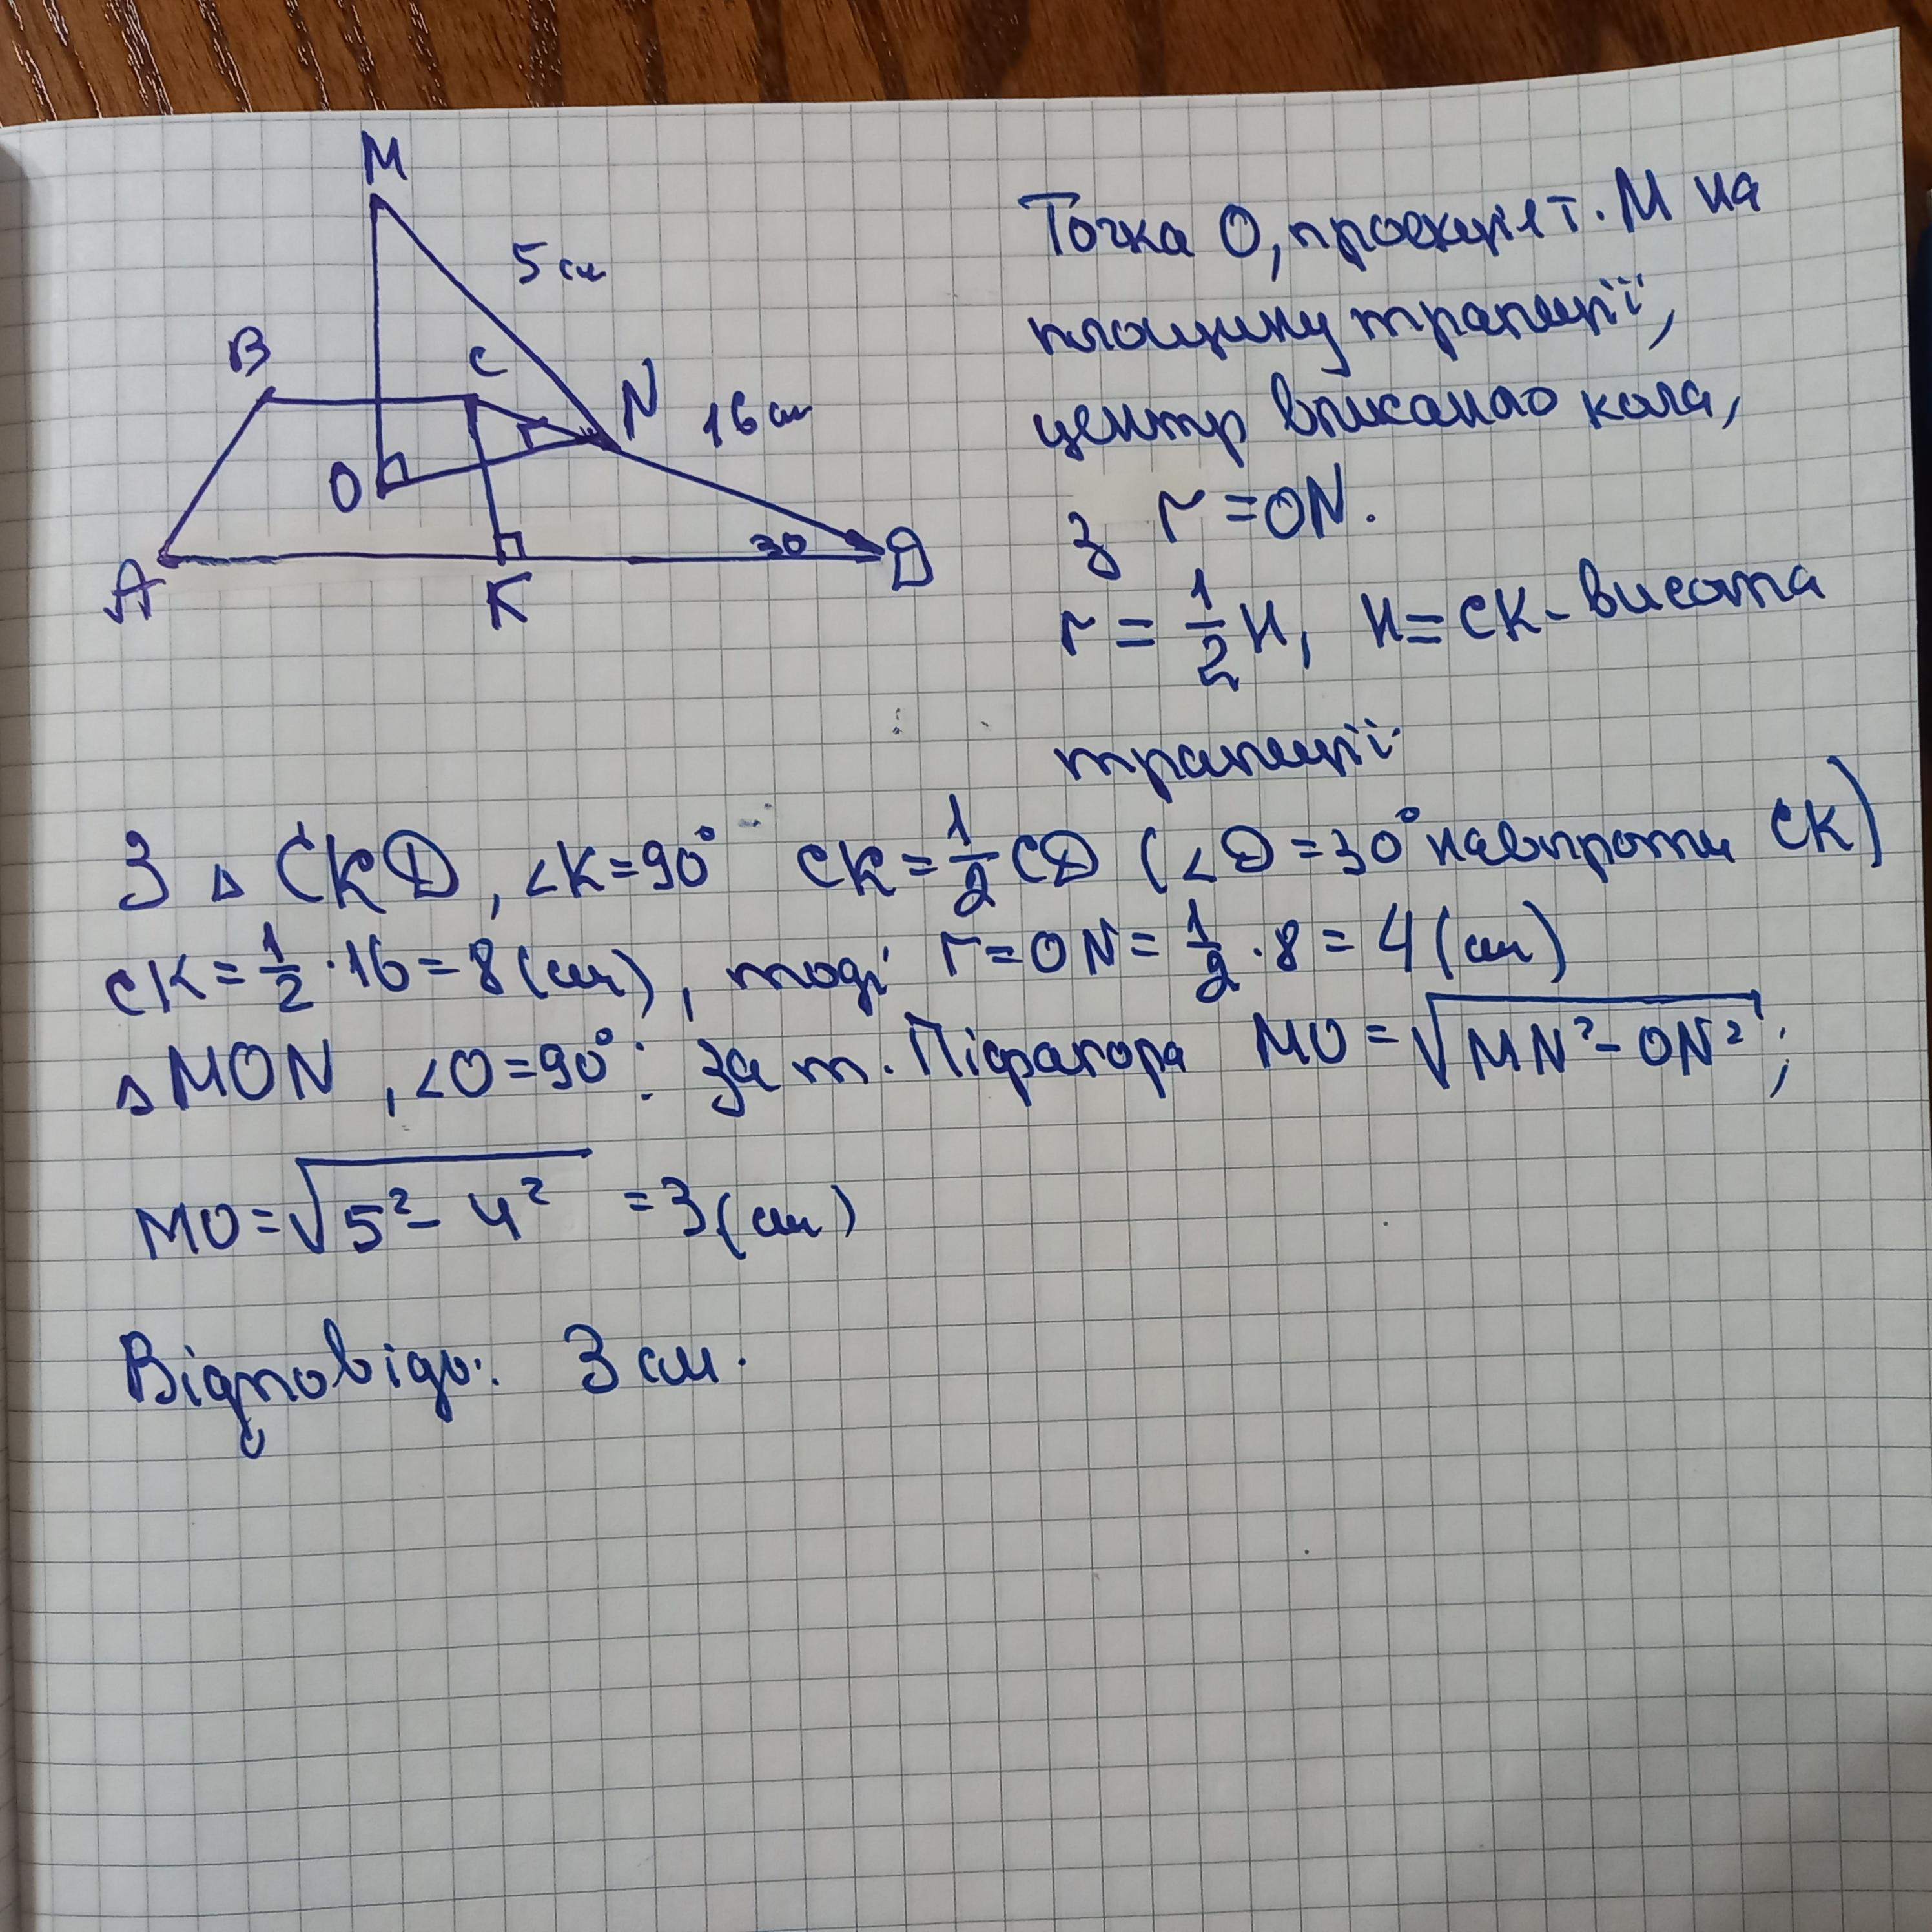 M
5 см
B
C
N
16 см
O
30
A
K
D
Точка О, проекція т. М на
площину трапеції,
центр вписаного кола,
з r = ON.
r = 1/2 H, H = CK - висота
трапеції
З △ CKD, ∠K = 90° CK = 1/2 CD (∠D = 30° навпроти CK)
CK = 1/2 · 16 = 8 (см), тоді r = ON = 1/2 · 8 = 4 (см)
△ MON, ∠O = 90°: за т. Піфагора MO = √(MN² - ON²);
MO = √(5² - 4²) = 3 (см)
Відповідь: 3 см.